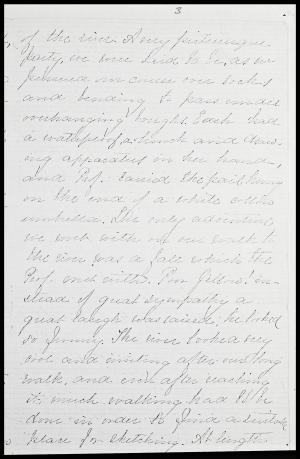 3
of the river. A very picturesque
party, we were said to be, as we
pursued our course over rocks
and bending to pass under
overhanging boughs. Each had
a waterproof, a lunch and draw-
ing apparatus in her hand,
and Prof. carried the pail hung
on the end of a white cotton
umbrella. The only adventure
we met with on our walk to
the river was a fall which the
Prof. met with. Poor fellow! in-
stead of great sympathy a
great laugh was raised, he looked
so funny. The river looked very
cool and inviting after our long
walk, and even after reaching
it, much walking had to be
done in order to find a suitable
place for sketching. At length